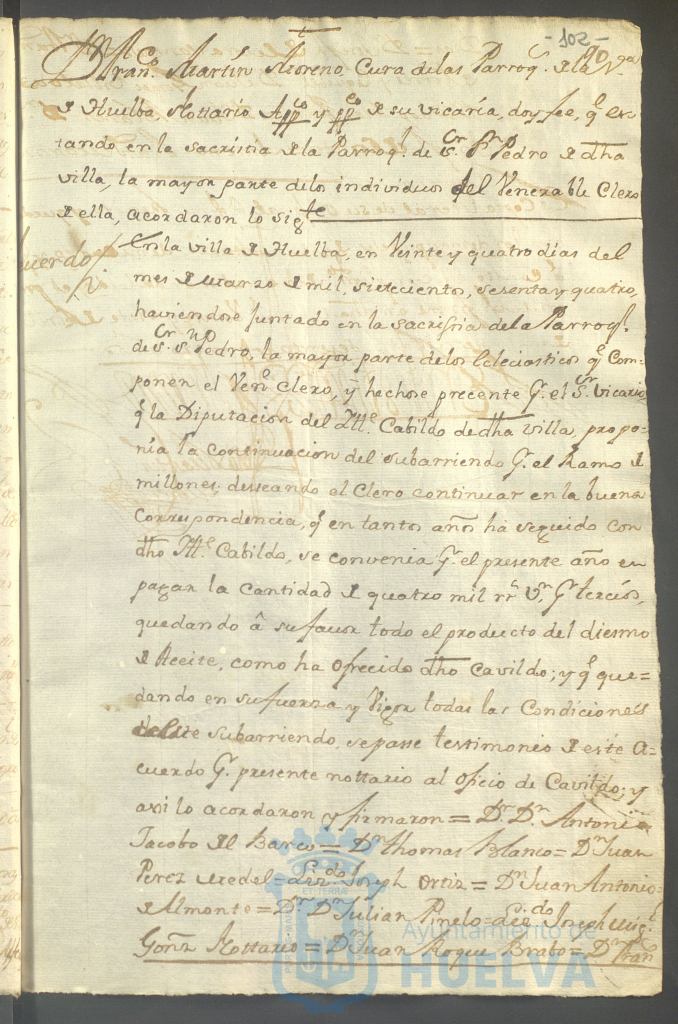 -102-
90
Dn Franco Martin Moreno Cura de las Parroqs. de la Va.
de Huelba, Nottario Appco y ppco de su vicaría, doy fee, q̃ es-
tando en la sacristia de la Parroql. de Sr. Sn Pedro de dha
villa, la mayor parte de los individuos del Venerable Clero
de ella, acordaron lo sigte
Acuerdo
En la villa de Huelba, en Veinte y quatro dias del
mes de marzo de mil, sietecientos, sesenta y quatro,
haviendose juntado en la sacristia de la Parroql.
de Sr. Sn Pedro, la mayor parte de los Eclesiasticos q̃ Com-
ponen el Vene. Clero, y hechose precente Pr. el Sr. Vicario
q̃ la Diputacion del Itte. Cabildo de dha villa propo-
nía la Continuacion del subarriendo Pr. el Ramo de
millones, desseando el Clero continuar en la buena
Correspondencia, q̃ en tantos años ha seguido con
dho Itte. Cabildo, se convenia Pr. el presente año en
pagar la Cantidad de quatro mil rrs. Vn. Pr tercios,
quedando â su favor todo el producto del diesmo
de Aceite, como ha ofrecido dho Cavildo; y q̃ que=
dando en su fuerza y Vigor todas las Condiciones
deste subarriendo, se passe testimonio de este A=
cuerdo Pr. presente nottario al oficio de Cavildo; y
asi lo acordaron y firmaron = Dr. Dn. Antonio
Jacobo del Barco = Dn thomas Blanco = Dn Juan
Perez = Lizdo Joseph Ortiz = Dn Juan Antonio
de Almonte = Dr. Dn Julian Pinelo = Lizdo Joseph Migl.
Gonz Nottario = Dn Juan Roque Brabo = Dn Fran
Ayuntamiento de
HUELVA